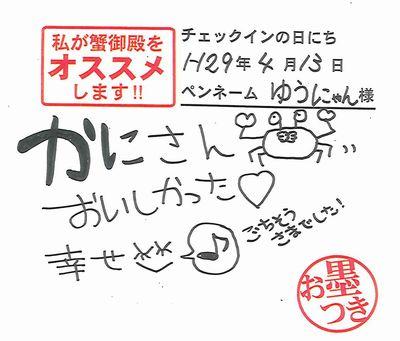 私が蟹御殿を
オススメ
します!!
チェックインの日にち
H29年4月13日
ペンネーム ゆうにゃん様
かにさん
おいしかった♡
幸せ
♪
ごちそう
さまでした!
お墨つき